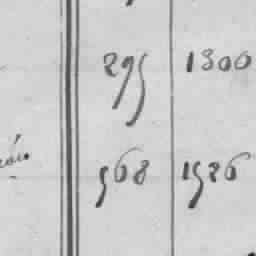 295 1800
568 1526